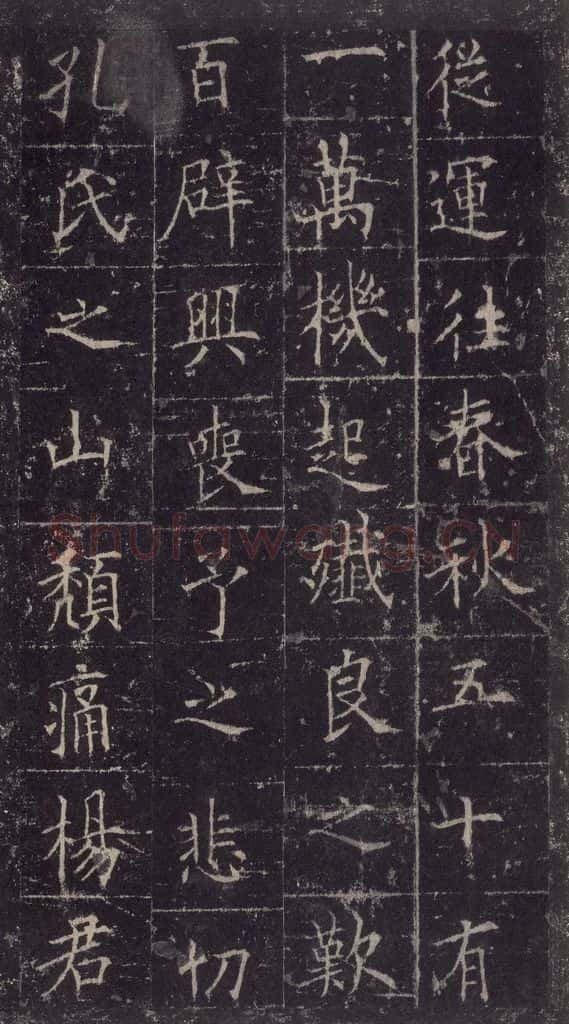 從運往春秋五十有
一萬機起殲良之歎
百辟興喪予之悲切
孔氏之山頹痛楊君
Shufawang.CN